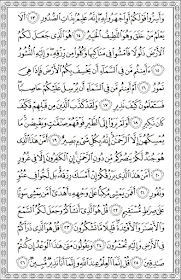 وَأَسِرُّوا۟ قَوْلَكُمْ أَوِ ٱجْهَرُوا۟ بِهِۦٓ إِنَّهُۥ عَلِيمٌۢ بِذَاتِ ٱلصُّدُورِ ١٣ أَلَا
يَعْلَمُ مَنْ خَلَقَ وَهُوَ ٱللَّطِيفُ ٱلْخَبِيرُ ١٤ هُوَ ٱلَّذِى جَعَلَ لَكُمُ
ٱلْأَرْضَ ذَلُولًا فَٱمْشُوا۟ فِى مَنَاكِبِهَا وَكُلُوا۟ مِن رِّزْقِهِۦ وَإِلَيْهِ ٱلنُّشُورُ
١٥ ءَأَمِنتُم مَّن فِى ٱلسَّمَآءِ أَن يَخْسِفَ بِكُمُ ٱلْأَرْضَ فَإِذَا هِىَ
تَمُورُ ١٦ أَمْ أَمِنتُم مَّن فِى ٱلسَّمَآءِ أَن يُرْسِلَ عَلَيْكُمْ حَاصِبًا
فَسَتَعْلَمُونَ كَيْفَ نَذِيرِ ١٧ وَلَقَدْ كَذَّبَ ٱلَّذِينَ مِن قَبْلِهِمْ فَكَيْفَ
كَانَ نَكِيرِ ١٨ أَوَلَمْ يَرَوْا۟ إِلَى ٱلطَّيْرِ فَوْقَهُمْ صَٰٓفَّٰتٍ وَيَقْبِضْنَ مَا
يُمْسِكُهُنَّ إِلَّا ٱلرَّحْمَٰنُ إِنَّهُۥ بِكُلِّ شَىْءٍۭ بَصِيرٌ ١٩ أَمَّنْ هَٰذَا ٱلَّذِى
هُوَ جُندٌ لَّكُمْ يَنصُرُكُم مِّن دُونِ ٱلرَّحْمَٰنِ إِنِ ٱلْكَٰفِرُونَ إِلَّا فِى غُرُورٍ
٢٠ أَمَّنْ هَٰذَا ٱلَّذِى يَرْزُقُكُمْ إِنْ أَمْسَكَ رِزْقَهُۥ بَل لَّجُّوا۟ فِى عُتُوٍّ وَنُفُورٍ
٢١ أَفَمَن يَمْشِى مُكِبًّا عَلَىٰ وَجْهِهِۦٓ أَهْدَىٰٓ أَمَّن يَمْشِى سَوِيًّا
عَلَىٰ صِرَٰطٍ مُّسْتَقِيمٍ ٢٢ قُلْ هُوَ ٱلَّذِىٓ أَنشَأَكُمْ وَجَعَلَ لَكُمُ ٱلسَّمْعَ
وَٱلْأَبْصَٰرَ وَٱلْأَفْـِٔدَةَ قَلِيلًا مَّا تَشْكُرُونَ ٢٣ قُلْ هُوَ ٱلَّذِى ذَرَأَكُمْ
فِى ٱلْأَرْضِ وَإِلَيْهِ تُحْشَرُونَ ٢٤ وَيَقُولُونَ مَتَىٰ هَٰذَا ٱلْوَعْدُ إِن كُنتُمْ
صَٰدِقِينَ ٢٥ قُلْ إِنَّمَا ٱلْعِلْمُ عِندَ ٱللَّهِ وَإِنَّمَآ أَنَا۠ نَذِيرٌ مُّبِينٌ ٢٦